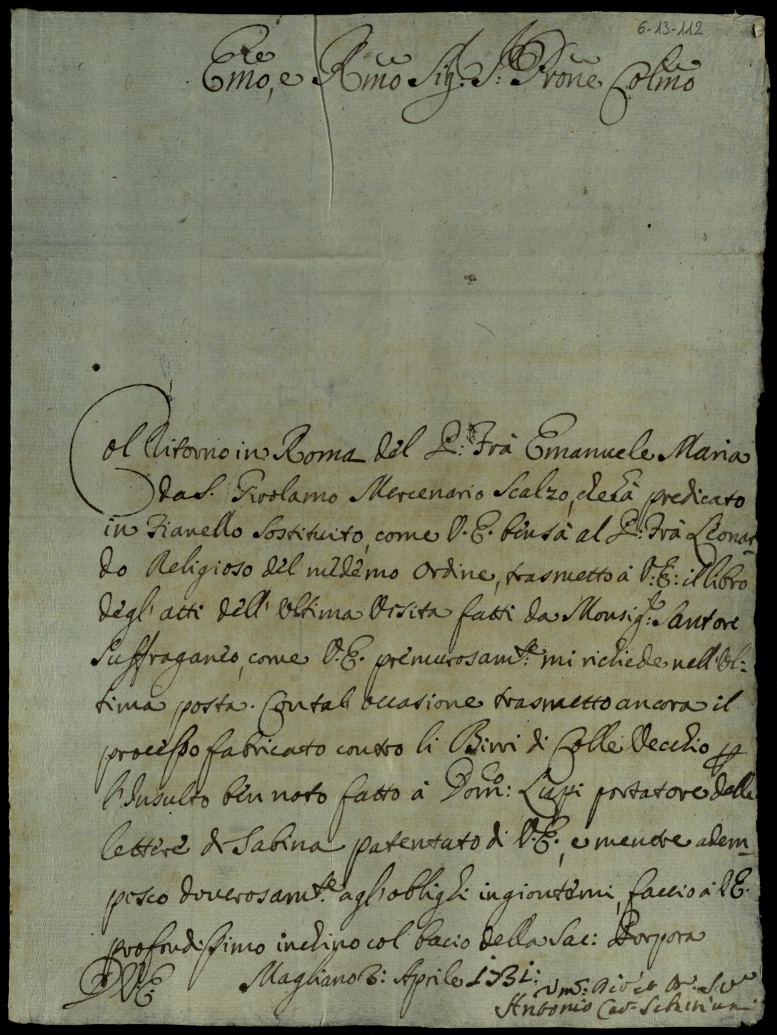 6-13-112
Emo, e Rmo Sig. S. Prone Colmo
Col Ritorno in Roma del P: Frà Emanuele Maria
da S. Girolamo Mercenario Scalzo, che hà predicato
in Fianello sostituito, come V. E. ben sà al P: Frà Leonar
do Religioso del medemo ordine, trasmetto à V: E: il libro
degl' atti dell' Ultima Visita fatti da Monsig.r Santore
Suffraganeo, come V. E. premurosam.te mi richiede nell' Ul:
tima posta. Con tale occasione trasmetto ancora il
processo fabricato contro li Birri di Colle Vecchio p
l'Insulto ben noto fatto à Dom.co: Lupi portatore delle
lettere di Sabina patentato di V. E., e mentre adem_
pisco doverosam.te agl' oblighi ingiontemi, faccio à V E.
profondissimo inchino col bacio della Sac: Porpora
D V. E. Magliano 8: Aprile 1731:
Antonio